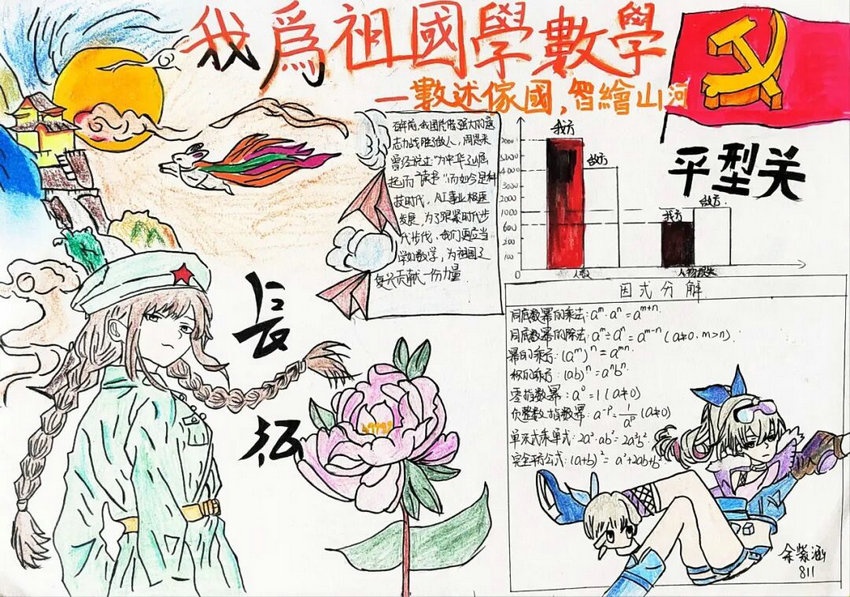 我為祖國學數學
—數述傢國,智繪山河
百年前,我國凭借强大的意
志力战胜敌人,周恩来
曾经说过“为中华之崛
起而读书”而如今是科
技时代,AI事业极速
发展,为了跟紧时代步
代步伐,我们更应当
学好数学,为祖国之
复兴贡献一份力量.
平型关
我方
敌方
我方
敌方
1000
600
100
0
人数
長
征
因式分解
同底数幂的乘法:aᵐ·aⁿ=aᵐ⁺ⁿ.
同底数幂的除法:aᵐ÷aⁿ=aᵐ⁻ⁿ(a≠0,m>n).
幂的乘方:(aᵐ)ⁿ=aᵐⁿ.
积的乘方:(ab)ⁿ=aⁿbⁿ.
零指数幂:a⁰=1(a≠0)
负整数指数幂:a⁻ᵖ=1/aᵖ(a≠0)
单项式乘单式:2a²·ab²=2a³b².
完全平方公式:(a+b)²=a²+2ab+b²
余紫涵
811